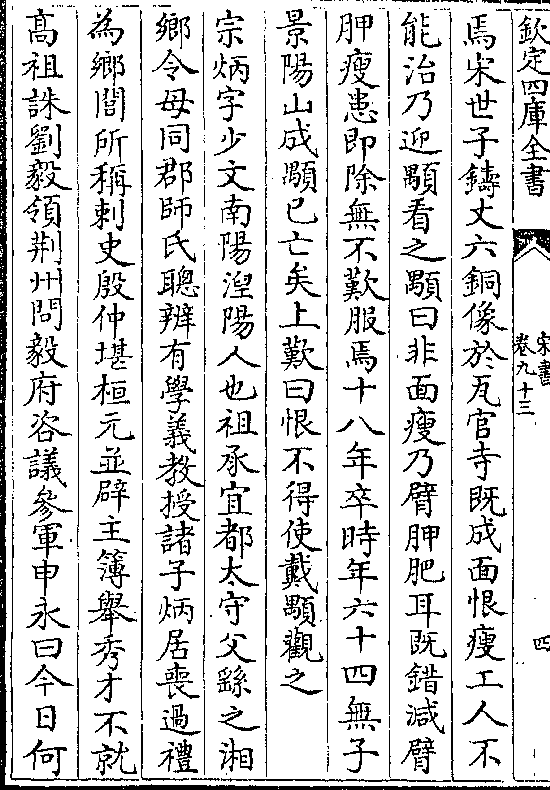 欽定四庫全書
宋書
卷九十三
四
焉宋世子鑄丈六銅像於瓦官寺既成面恨瘦工人不
能治乃迎顒看之顒曰非面瘦乃臂胛肥耳既錯減臂
胛瘦患即除無不歎服焉十八年卒時年六十四無子
景陽山成顒已亡矣上歎曰恨不得使戴顒觀之
宗炳字少文南陽涅陽人也祖承宜都太守父繇之湘
鄉令母同郡師氏聰辯有學義教授諸子炳居喪過禮
為鄉閭所稱刺史殷仲堪桓元並辟主簿舉秀才不就
髙祖誅劉毅領荆州問毅府咨議參軍申永曰今日何